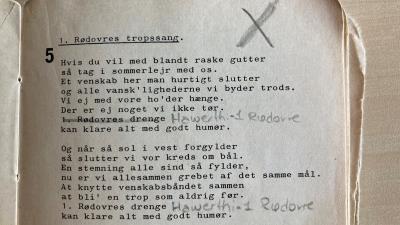 1. Rødovres tropssang.
5
Hvis du vil med blandt raske gutter
så tag i sommerlejr med os.
Et venskab her man hurtigt slutter
og alle vansk'lighederne vi byder trods.
Vi ej med vore ho'der hænge.
Der er ej noget vi ikke tør.
1. Rødovres drenge Hawerthi-1 Rødovre
kan klare alt med godt humør.
Og når så sol i vest forgylder
så slutter vi vor kreds om bål.
En stemning alle sind så fylder,
nu er vi allesammen grebet af det samme mål.
At knytte venskabsbåndet sammen
at bli' en trop som aldrig før.
1. Rødovres drenge Hawerthi-1 Rødovre
kan klare alt med godt humør.